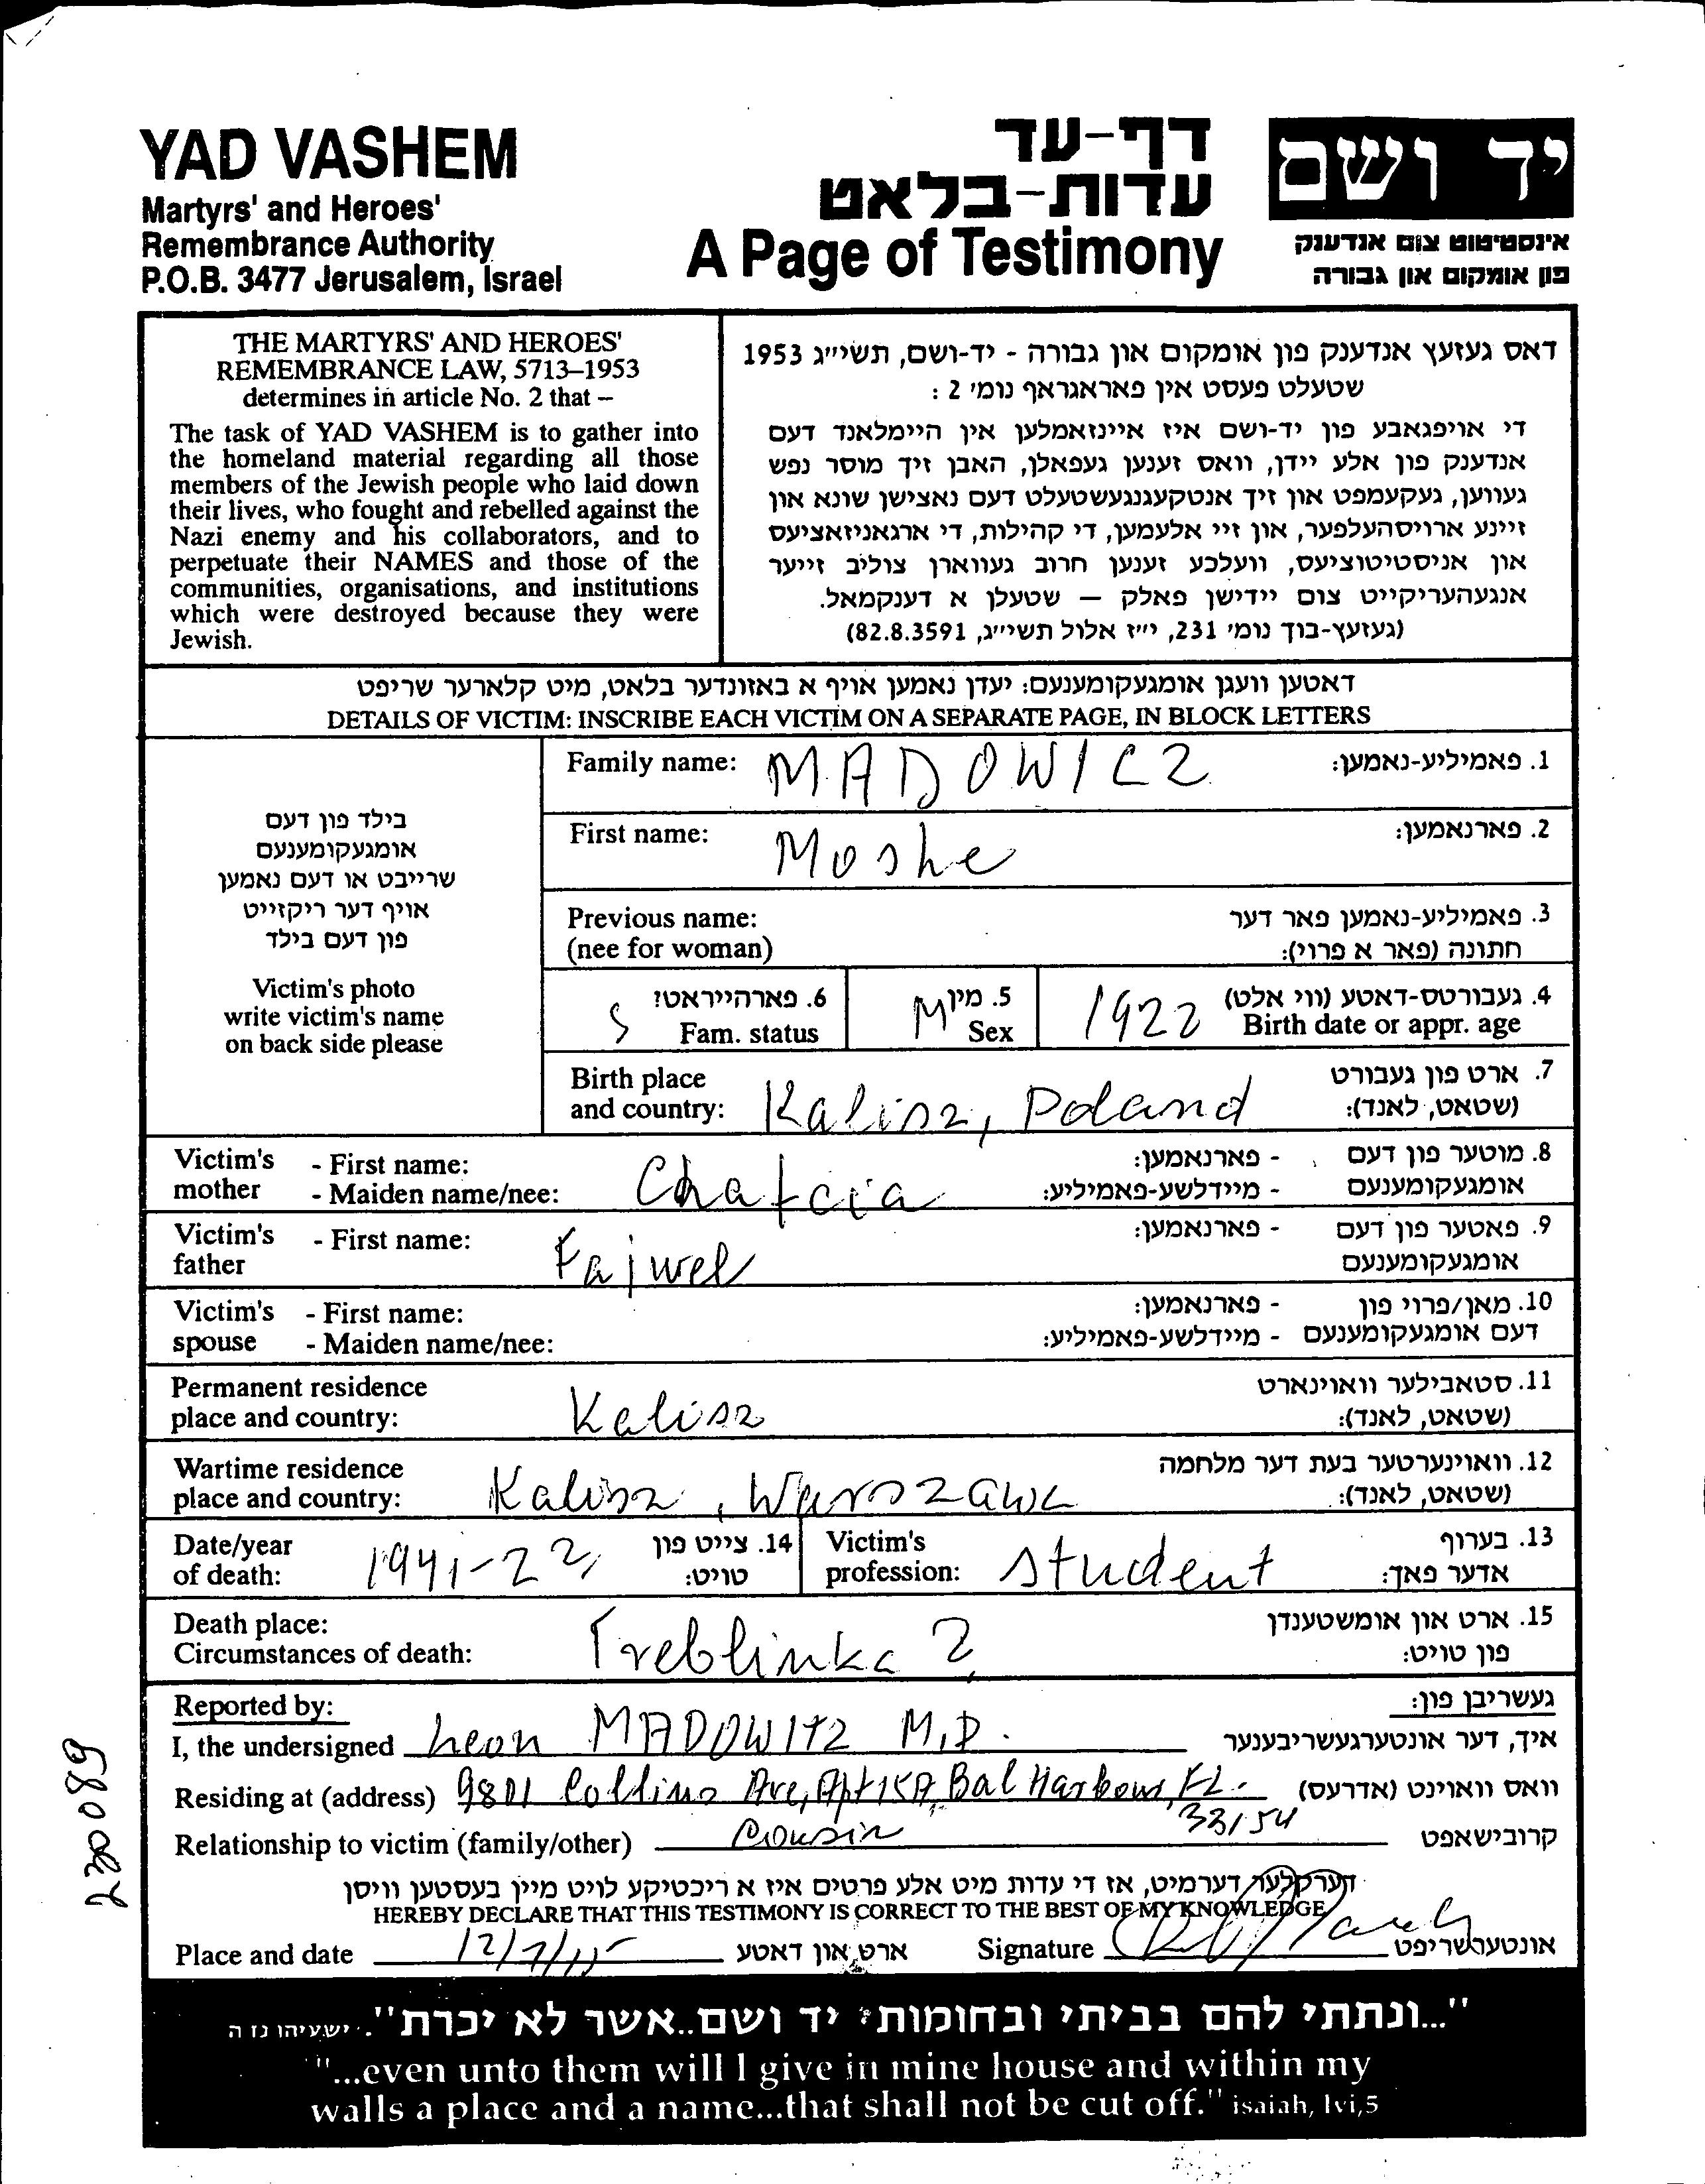 YAD VASHEM
Martyrs' and Heroes'
Remembrance Authority
P.O.B. 3477 Jerusalem, Israel
דף-עד
עדות-בלאט
A Page of Testimony
יד ושם
אינסטיטוט צום אנדענק
פון אומקום און גבורה
THE MARTYRS' AND HEROES'
REMEMBRANCE LAW, 5713–1953
determines in article No. 2 that –
The task of YAD VASHEM is to gather into
the homeland material regarding all those
members of the Jewish people who laid down
their lives, who fought and rebelled against the
Nazi enemy and his collaborators, and to
perpetuate their NAMES and those of the
communities, organisations, and institutions
which were destroyed because they were
Jewish.
דאס געזעץ אנדענק פון אומקום און גבורה - יד-ושם, תשי״ג 1953
שטעלט פעסט אין פאראגראף נומ׳ 2 :
די אויפגאבע פון יד-ושם איז איינזאמלען אין היימלאנד דעם
אנדענק פון אלע יידן, וואס זענען געפאלן, האבן זיך מוסר נפש
געווען, געקעמפט און זיך אנטקעגנגעשטעלט דעם נאצישן שונא און
זיינע ארויסהעלפער, און זיי אלעמען, די קהילות, די ארגאניזאציעס
און אניסטיטוציעס, וועלכע זענען חרוב געווארן צוליב זייער
אנגעהעריקייט צום יידישן פאלק — שטעלן א דענקמאל.
(געזעץ-בוך נומ׳ 231, י״ז אלול תשי״ג, 82.8.3591)
דאטען וועגן אומגעקומענעם: יעדן נאמען אויף א באזונדער בלאט, מיט קלארער שריפט
DETAILS OF VICTIM: INSCRIBE EACH VICTIM ON A SEPARATE PAGE, IN BLOCK LETTERS
בילד פון דעם
אומגעקומענעם
שרייבט או דעם נאמען
אויף דער ריקזייט
פון דעם בילד
Victim's photo
write victim's name
on back side please
Family name: MADOWICZ 1. פאמיליע-נאמען:
First name: Moshe 2. פארנאמען:
Previous name: 3. פאמיליע-נאמען פאר דער
(nee for woman) חתונה (פאר א פרוי):
S 6. פארהייראט? M 5. מין 1922 4. געבורטס-דאטע (ווי אלט)
Fam. status Sex Birth date or appr. age
Birth place 7. ארט פון געבורט
and country: Kalisz, Poland (שטאט, לאנד):
Victim's - First name: - פארנאמען: 8. מוטער פון דעם
mother - Maiden name/nee: - מיידלשע-פאמיליע: אומגעקומענעם
Victim's - First name: Fajwel - פארנאמען: 9. פאטער פון דעם
father אומגעקומענעם
Victim's - First name: - פארנאמען: 10. מאן/פרוי פון
spouse - Maiden name/nee: - מיידלשע-פאמיליע: דעם אומגעקומענעם
Permanent residence 11. סטאבילער וואוינארט
place and country: Kalisz (שטאט, לאנד):
Wartime residence 12. וואוינערטער בעת דער מלחמה
place and country: Kalisz, Warszawa (שטאט, לאנד):
Date/year 14. צייט פון Victim's 13. בערוף
of death: 1941-22 טויט: profession: student אדער פאך:
Death place: 15. ארט און אומשטענדן
Circumstances of death: Treblinka ? פון טויט:
Reported by: געשריבן פון:
I, the undersigned Leon MADOWITZ M.D. איך, דער אונטערגעשריבענער
Residing at (address) 9801 Collins Ave, Apt 15A, Bal Harbour, FL. וואס וואוינט (אדרעס)
33154
Relationship to victim (family/other) Cousin קרובישאפט
דערקלער דערמיט, אז די עדות מיט אלע פרטים איז א ריכטיקע לויט מיין בעסטען וויסן
HEREBY DECLARE THAT THIS TESTIMONY IS CORRECT TO THE BEST OF MY KNOWLEDGE
Place and date ארט און דאטע Signature אונטערשריפט
230089
"...ונתתי להם בביתי ובחומותי יד ושם..אשר לא יכרת". ישעיהו נו ה
"...even unto them will I give in mine house and within my
walls a place and a name...that shall not be cut off." isaiah, lvi,5